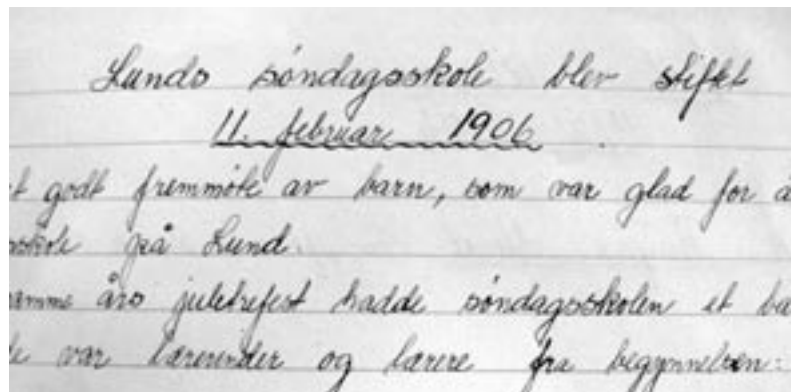 Lunds søndagsskole blev stiftet
11. februar 1906.
t godt fremmøte av barn, som var glad for å
skole på Lund.
amme års juletrefest hadde søndagsskolen et ba
de var lærerinder og lærere fra begynnelsen: